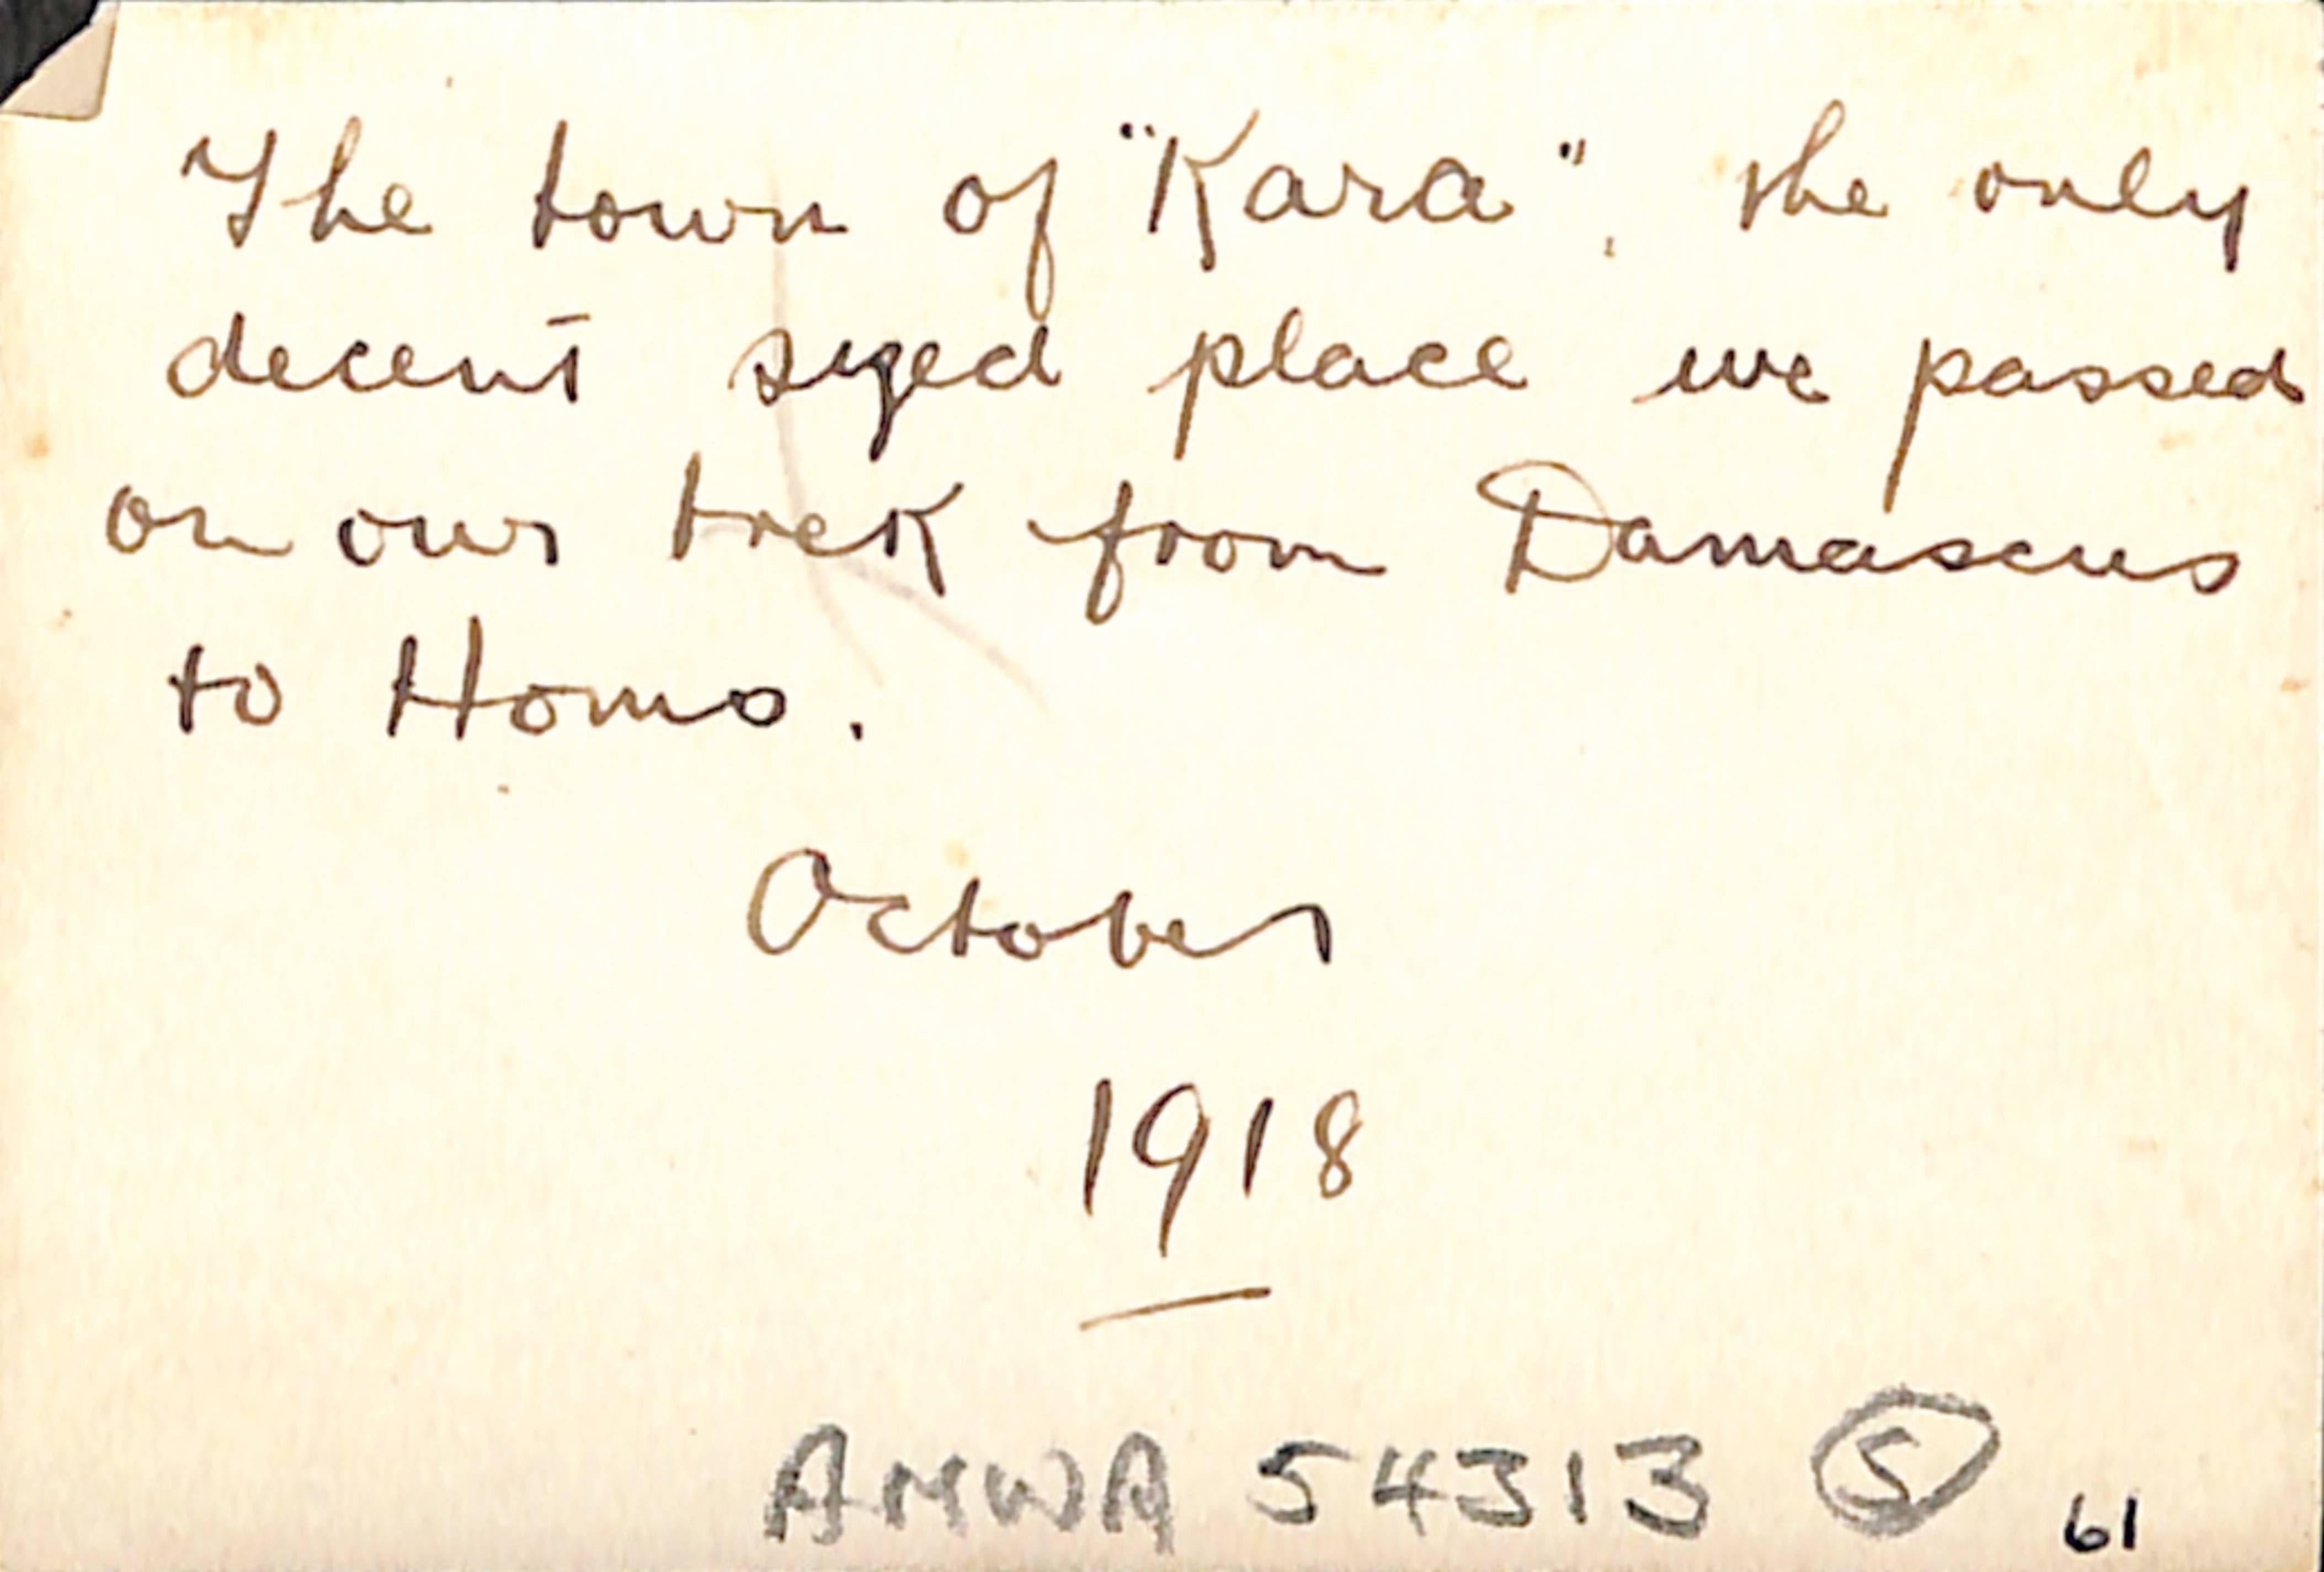 The town of "Kara", the only
decent sized place we passed
on our trek from Damascus
to Homs.
October
1918
AMWA 54313 S
61